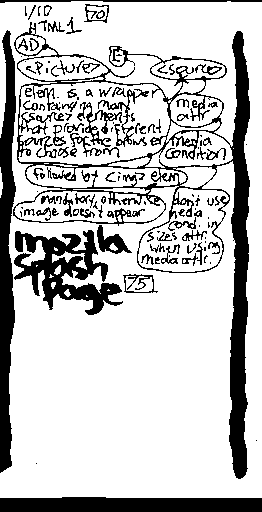 1/10 70
HTML 1
AD
E
<picture>
<source>
elem. is a wrapper
containing many
<source> elements
that provide different
sources for the browser
to choose from
media
attr.
media
condition
followed by <img> elem
mandatory, otherwise
image doesn't appear
don't use
media
cond. in
sizes attr.
when using
media attr.
mozilla
splash
page
75